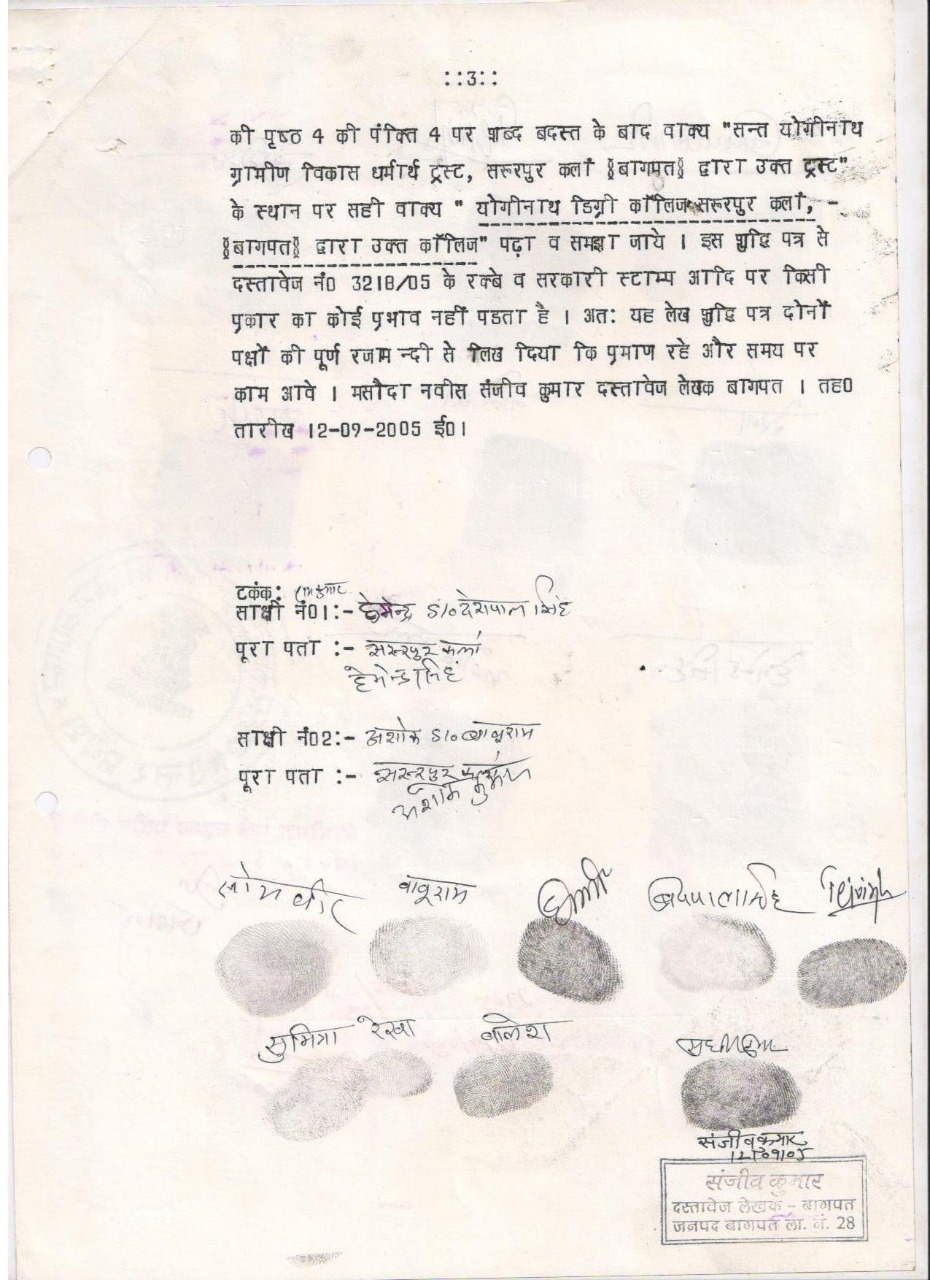 ::3::
की पृष्ठ 4 की पंक्ति 4 पर शब्द बदस्त के बाद वाक्य "सन्त योगीनाथ
ग्रामीण विकास धर्मार्थ ट्रस्ट, सरूरपुर कलां §बागपत§ द्वारा उक्त ट्रस्ट"
के स्थान पर सही वाक्य " योगीनाथ डिग्री कॉलिज सरूरपुर कलां, -
§बागपत§ द्वारा उक्त कॉलिज" पढ़ा व समझा जाये । इस शुद्धि पत्र से
दस्तावेज नं0 3218/05 के रक्बे व सरकारी स्टाम्प आदि पर किसी
प्रकार का कोई प्रभाव नहीं पडता है । अतः यह लेख शुद्धि पत्र दोनों
पक्षों की पूर्ण रजाम न्दी से लिख दिया कि प्रमाण रहे और समय पर
काम आवे । मसौदा नवीस संजीव कुमार दस्तावेज लेखक बागपत । तह0
तारीख 12-09-2005 ई0।
टकंक:
साक्षी नं01:- हेमेन्द्र S/० देशपाल सिंह
पूरा पता :- सरूरपुर कलां
हेमेन्द्र सिहं
साक्षी नं02:- अशोक S/० बाबूराम
पूरा पता :- सरूरपुर कलां
अशोक कुमार
सोमवीर बाबूराम
सुमित्रा रेखा बालेश
संजीव कुमार
12/09/05
संजीव कुमार
दस्तावेज लेखक - बागपत
जनपद बागपत ला. नं. 28